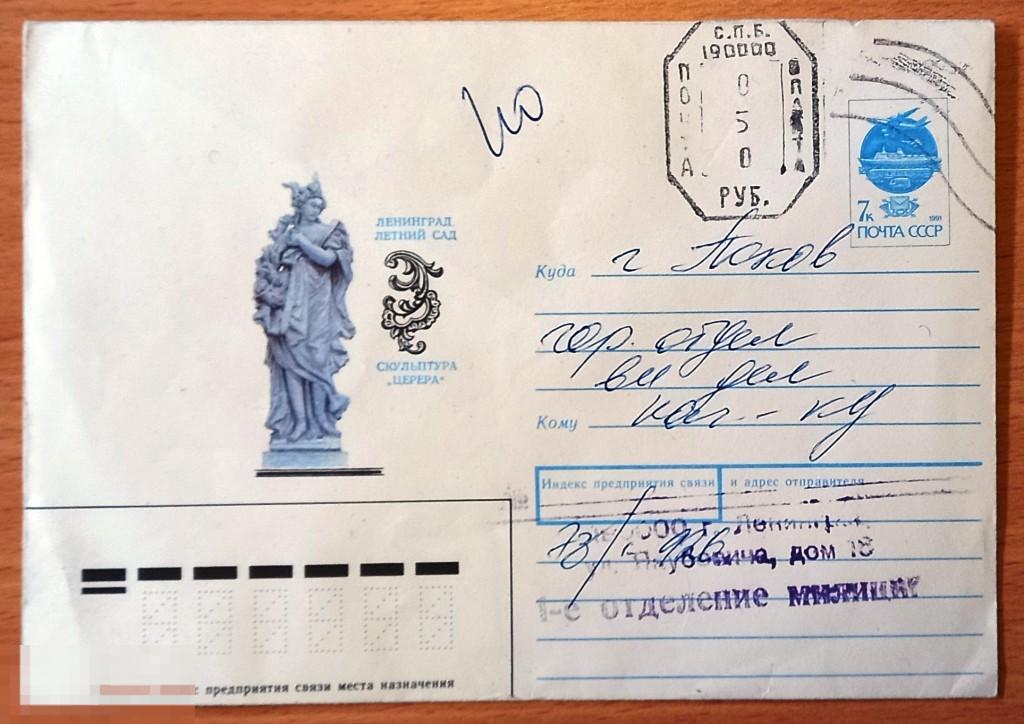 С.П.Б.
190000
ПОЧТА
ОПЛАТА
0
5
0
РУБ.
7к
1991
ПОЧТА СССР
ЛЕНИНГРАД
ЛЕТНИЙ САД
СКУЛЬПТУРА
„ЦЕРЕРА"
Куда г Псков
гор. отдел
вн дел
Кому нач-ку
Индекс предприятия связи и адрес отправителя
190000 г. Ленинград
ул. Якубовича, дом 18
1-е отделение милиции
предприятия связи места назначения